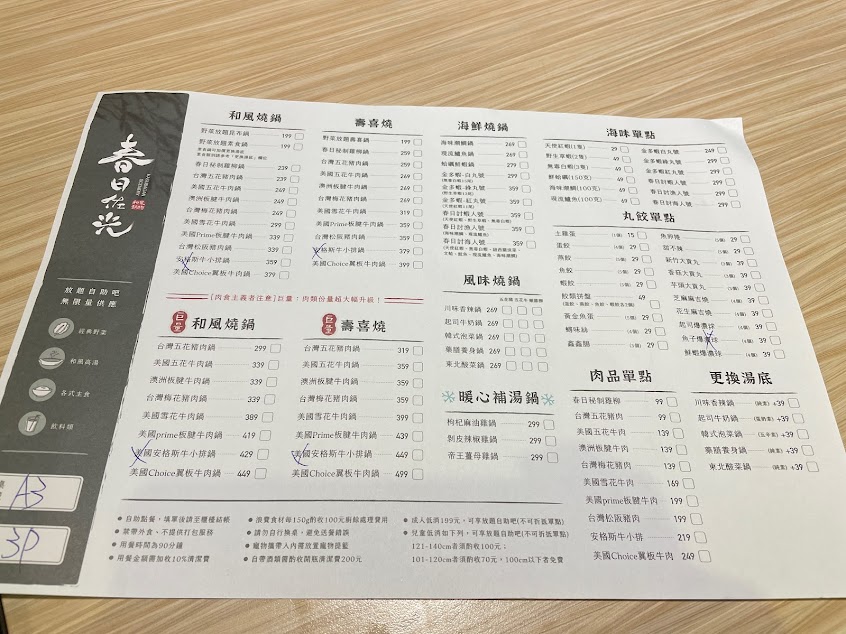 春日在光
放題自助吧
無限量供應
經典野菜
和風高湯
各式主食
飲料類
A3
3P
和風燒鍋
野菜放題昆布鍋 199
野菜放題素食鍋 199
春日秘制雞柳鍋 239
台灣五花豬肉鍋 239
美國五花牛肉鍋 249
澳洲板腱牛肉鍋 249
台灣梅花豬肉鍋 249
美國雪花牛肉鍋 299
美國Prime板腱牛肉鍋 339
台灣松阪豬肉鍋 339
安格斯牛小排鍋 359
美國Choice翼板牛肉鍋 379
壽喜燒
野菜放題壽喜鍋 199
春日秘制雞柳鍋 259
台灣五花豬肉鍋 259
美國五花牛肉鍋 269
澳洲板腱牛肉鍋 269
台灣梅花豬肉鍋 269
美國雪花牛肉鍋 319
美國Prime板腱牛肉鍋 359
台灣松阪豬肉鍋 359
安格斯牛小排鍋 379
美國Choice翼板牛肉鍋 399
[肉食主義者注意]巨量：肉類份量超大幅升級！
巨量 和風燒鍋
台灣五花豬肉鍋 299
美國五花牛肉鍋 339
澳洲板腱牛肉鍋 339
台灣梅花豬肉鍋 339
美國雪花牛肉鍋 389
美國prime板腱牛肉鍋 419
美國安格斯牛小排鍋 429
美國Choice翼板牛肉鍋 449
巨量 壽喜燒
台灣五花豬肉鍋 319
美國五花牛肉鍋 359
澳洲板腱牛肉鍋 359
台灣梅花豬肉鍋 359
美國雪花牛肉鍋 399
美國Prime板腱牛肉鍋 439
美國安格斯牛小排鍋 449
美國Choice翼板牛肉鍋 499
海鮮燒鍋
海味潮鯛鍋 269
現流鱸魚鍋 269
蛤蠣鮮蝦鍋 279
金多蝦-白丸號 359
金多蝦-綠丸號 359
金多蝦-紅丸號 359
春日討蝦人號 359
春日討漁人號 359
春日討海人號 359
風味燒鍋
川味香辣鍋 269
起司牛奶鍋 269
韓式泡菜鍋 269
藥膳養身鍋 269
東北酸菜鍋 269
暖心補湯鍋
枸杞麻油雞鍋 299
剝皮辣椒雞鍋 299
帝王薑母雞鍋 299
海味單點
天使紅蝦(1隻) 29
野生草蝦(2隻) 49
無毒白蝦(3隻) 49
鮮蛤蠣(150克) 49
海味潮鯛(100克) 49
現流鱸魚(100克) 49
金多蝦白丸號 249
金多蝦綠丸號 299
金多蝦紅丸號 299
春日討蝦人號 299
春日討漁人號 299
春日討海人號 299
丸餃單點
土雞蛋 (1個) 15
蛋餃 (4個) 29
燕餃 (4個) 29
魚餃 (4個) 29
蝦餃 (4個) 29
餃類拼盤 49
黃金魚蛋 (4個) 29
蟳味絲 (4個) 29
鑫鑫腸 (5個) 29
魚卵捲 (3個) 29
甜不辣 (5個) 29
新竹大貢丸 (3個) 39
香菇大貢丸 (3個) 39
芋頭大貢丸 (3個) 39
芝麻麻吉燒 (4個) 39
花生麻吉燒 (4個) 39
起司爆漿球 (4個) 39
魚子爆漿球 (4個) 39
鮮蝦爆漿球 (4個) 39
肉品單點
春日秘制雞柳 99
台灣五花豬肉 99
美國五花牛肉 139
澳洲板腱牛肉 139
台灣梅花豬肉 139
美國雪花牛肉 169
美國prime板腱牛肉 199
台灣松阪豬肉 199
安格斯牛小排 219
美國Choice翼板牛肉 249
更換湯底
川味香辣鍋 (純素) +39
起司牛奶鍋 (蛋奶素) +39
韓式泡菜鍋 (五辛素) +39
藥膳養身鍋 (純素) +39
東北酸菜鍋 (純素) +39
● 自助點餐，填單後請至櫃檯結帳
● 禁帶外食、不提供打包服務
● 用餐時間為90分鐘
● 用餐金額需加收10%清潔費
● 浪費食材每150g酌收100元廚餘處理費用
● 請勿自行換桌，避免送餐錯誤
● 寵物攜帶入內需放置寵物提籃
● 自帶酒類需酌收開瓶清潔費200元
● 成人低消199元，可享放題自助吧(不可折抵單點)
● 兒童低消如下列，可享放題自助吧(不可折抵單點)
121-140cm者須酌收100元；
101-120cm者須酌收70元，100cm以下者免費